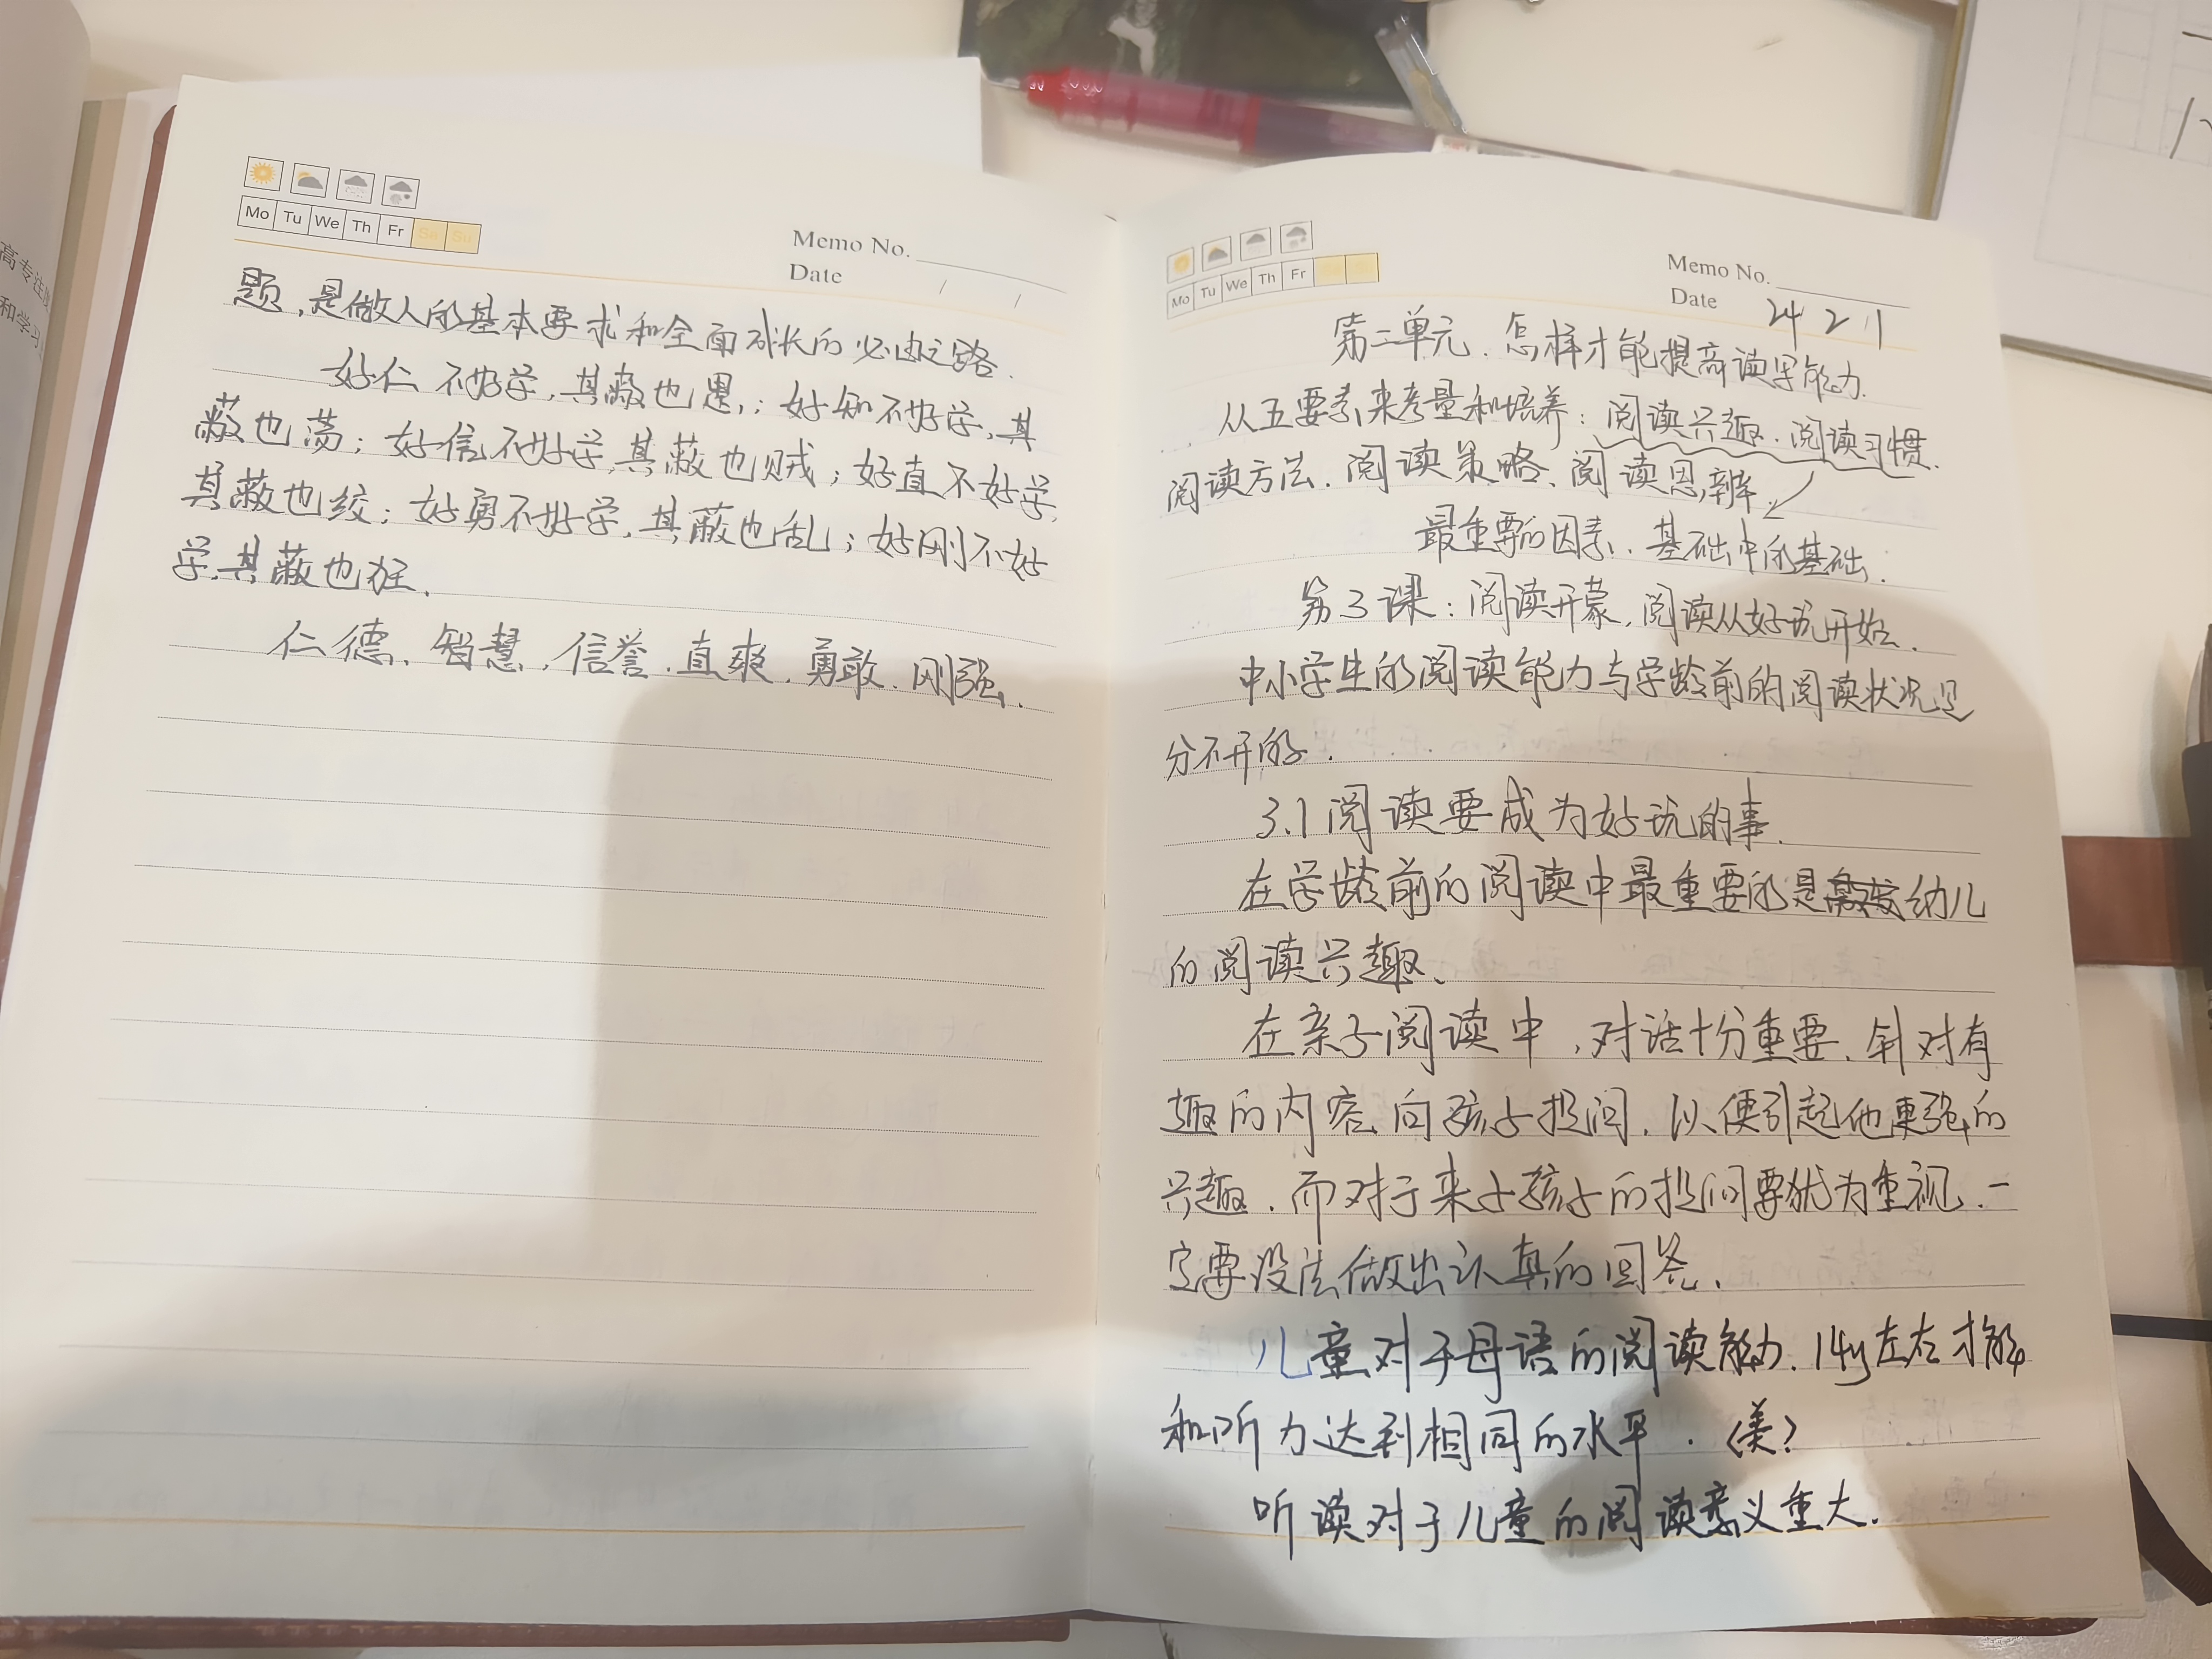 高专注
和学习
Mo Tu We Th Fr Sa Su
Memo No.
Date / /
题,是做人的基本要求和全面成长的必由之路.
好仁不好学,其蔽也愚;好知不好学,其
蔽也荡;好信不好学,其蔽也贼;好直不好学,
其蔽也绞;好勇不好学,其蔽也乱;好刚不好
学,其蔽也狂.
仁德、智慧、信誉、直爽、勇敢、刚强.
Mo Tu We Th Fr
Memo No.
Date 24 2 1
第二单元.怎样才能提高读写能力.
从五要素来考量和培养:阅读兴趣、阅读习惯、
阅读方法、阅读策略、阅读思辨
最重要的因素、基础中的基础.
第3课:阅读开蒙,阅读从好玩开始.
中小学生的阅读能力与学龄前的阅读状况是
分不开的.
3.1阅读要成为好玩的事.
在学龄前的阅读中最重要的是幼儿
的阅读兴趣、
在亲子阅读中,对话十分重要、针对有
趣的内容向孩子提问,以便引起他更强的
兴趣.而对于来于孩子的提问要犹为重视.一
定要设法做出认真的回答.
儿童对于母语的阅读能力.14y左右才能
和听力达到相同的水平.《美?
听读对于儿童的阅读意义重大.